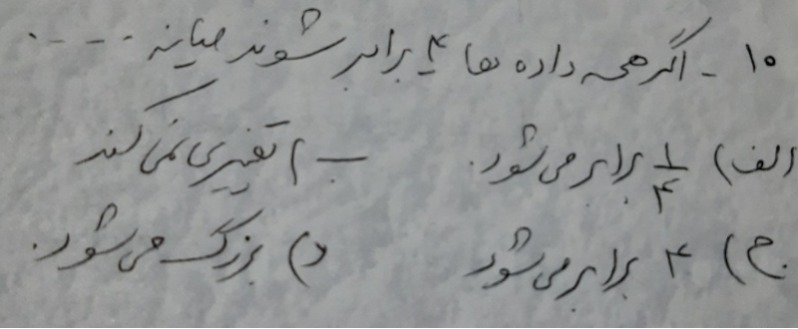 ۱۰ - اگر همه داده ها ۴ برابر شوند میانه ....
الف) ۱/۴ برابر می شود. ب) تغییری نمی کند
ج) ۴ برابر می شود د) بزرگ می شود.